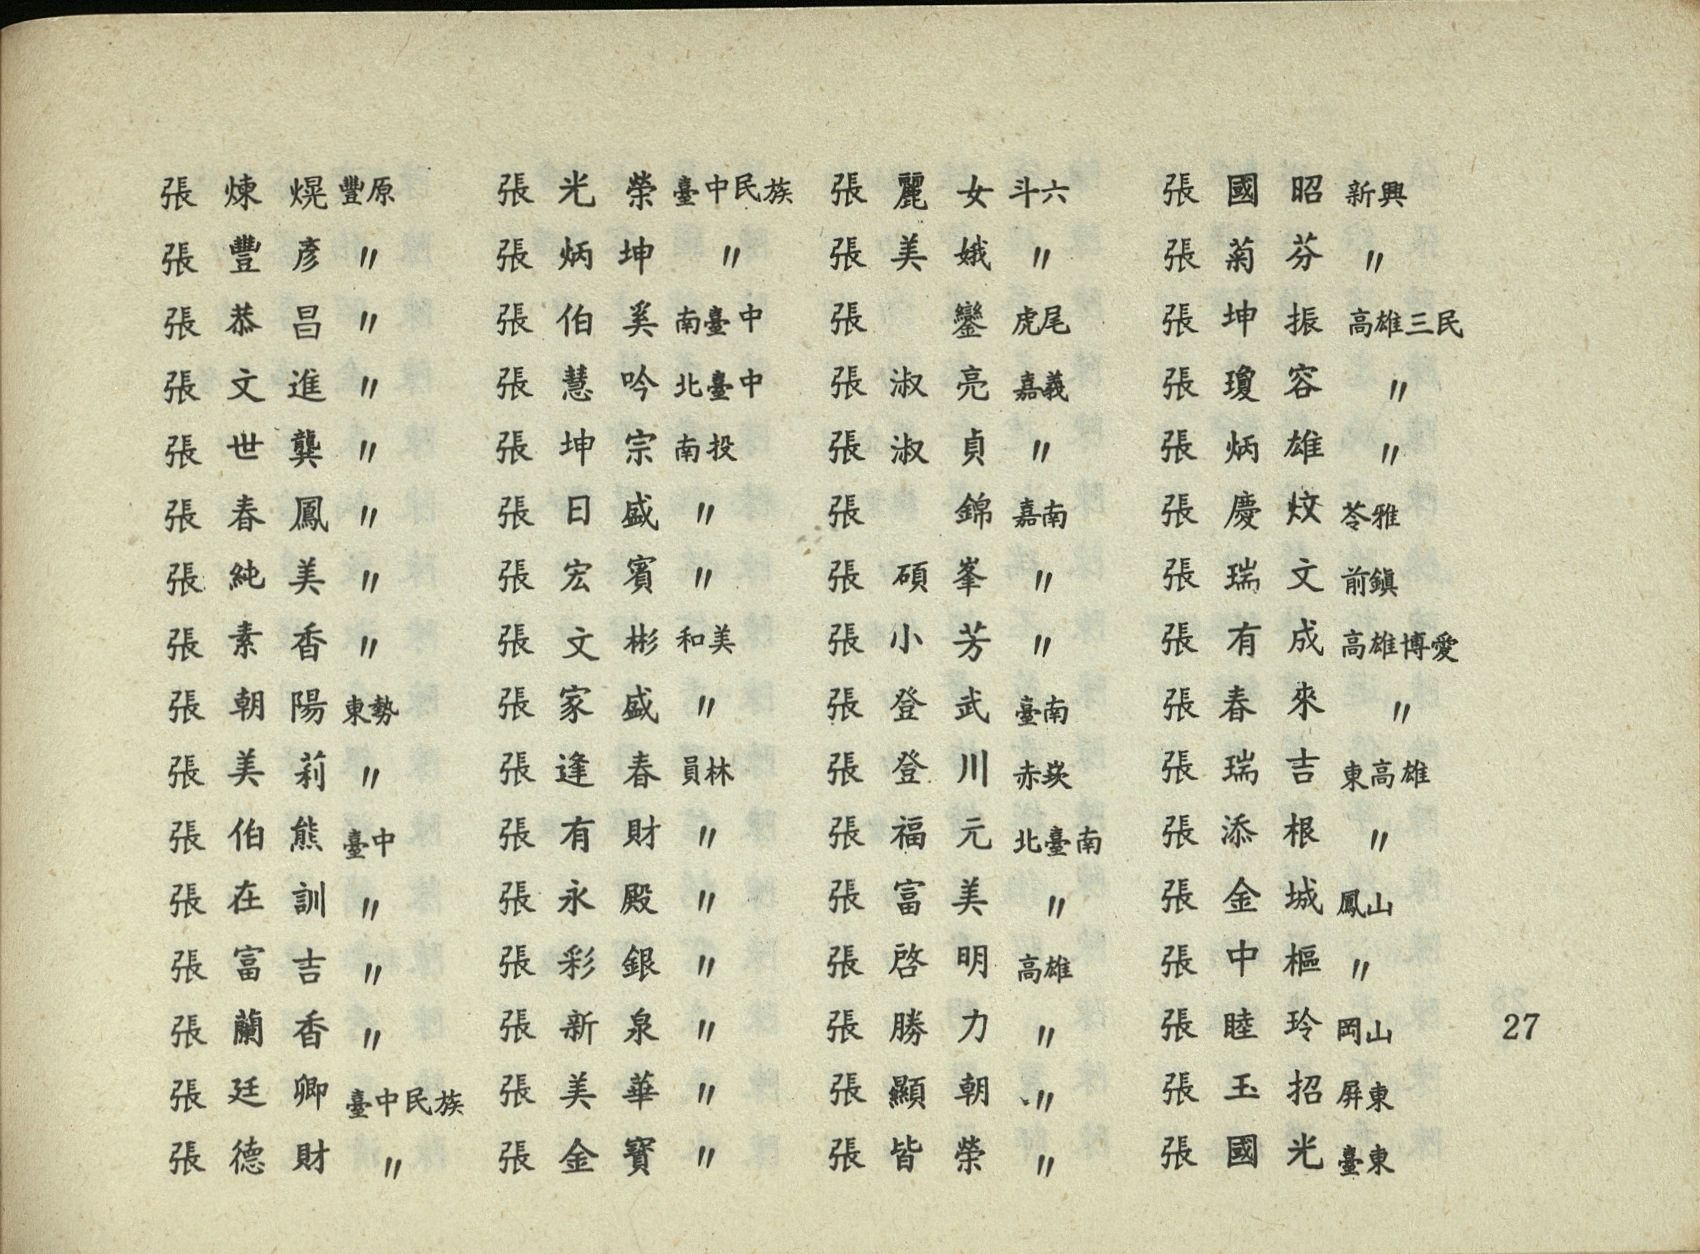 張煉熀 豐原
張豐彥 〃
張恭昌 〃
張文進 〃
張世龔 〃
張春鳳 〃
張純美 〃
張素香 〃
張朝陽 東勢
張美莉 〃
張伯熊 臺中
張在訓 〃
張富吉 〃
張蘭香 〃
張廷卿 臺中民族
張德財 〃
張光榮 臺中民族
張炳坤 〃
張伯奚 南臺中
張慧吟 北臺中
張坤宗 南投
張日盛 〃
張宏賓 〃
張文彬 和美
張家盛 〃
張逢春 員林
張有財 〃
張永殿 〃
張彩銀 〃
張新泉 〃
張美華 〃
張金寶 〃
張麗女 斗六
張美娥 〃
張鑾 虎尾
張淑亮 嘉義
張淑貞 〃
張錦 嘉南
張碩峯 〃
張小芳 〃
張登武 臺南
張登川 赤崁
張福元 北臺南
張富美 〃
張啓明 高雄
張勝力 〃
張顯朝 〃
張皆榮 〃
張國昭 新興
張菊芬 〃
張坤振 高雄三民
張瓊容 〃
張炳雄 〃
張慶炆 苓雅
張瑞文 前鎮
張有成 高雄博愛
張春來 〃
張瑞吉 東高雄
張添根 〃
張金城 鳳山
張中樞 〃
張睦玲 岡山
張玉招 屏東
張國光 臺東
27